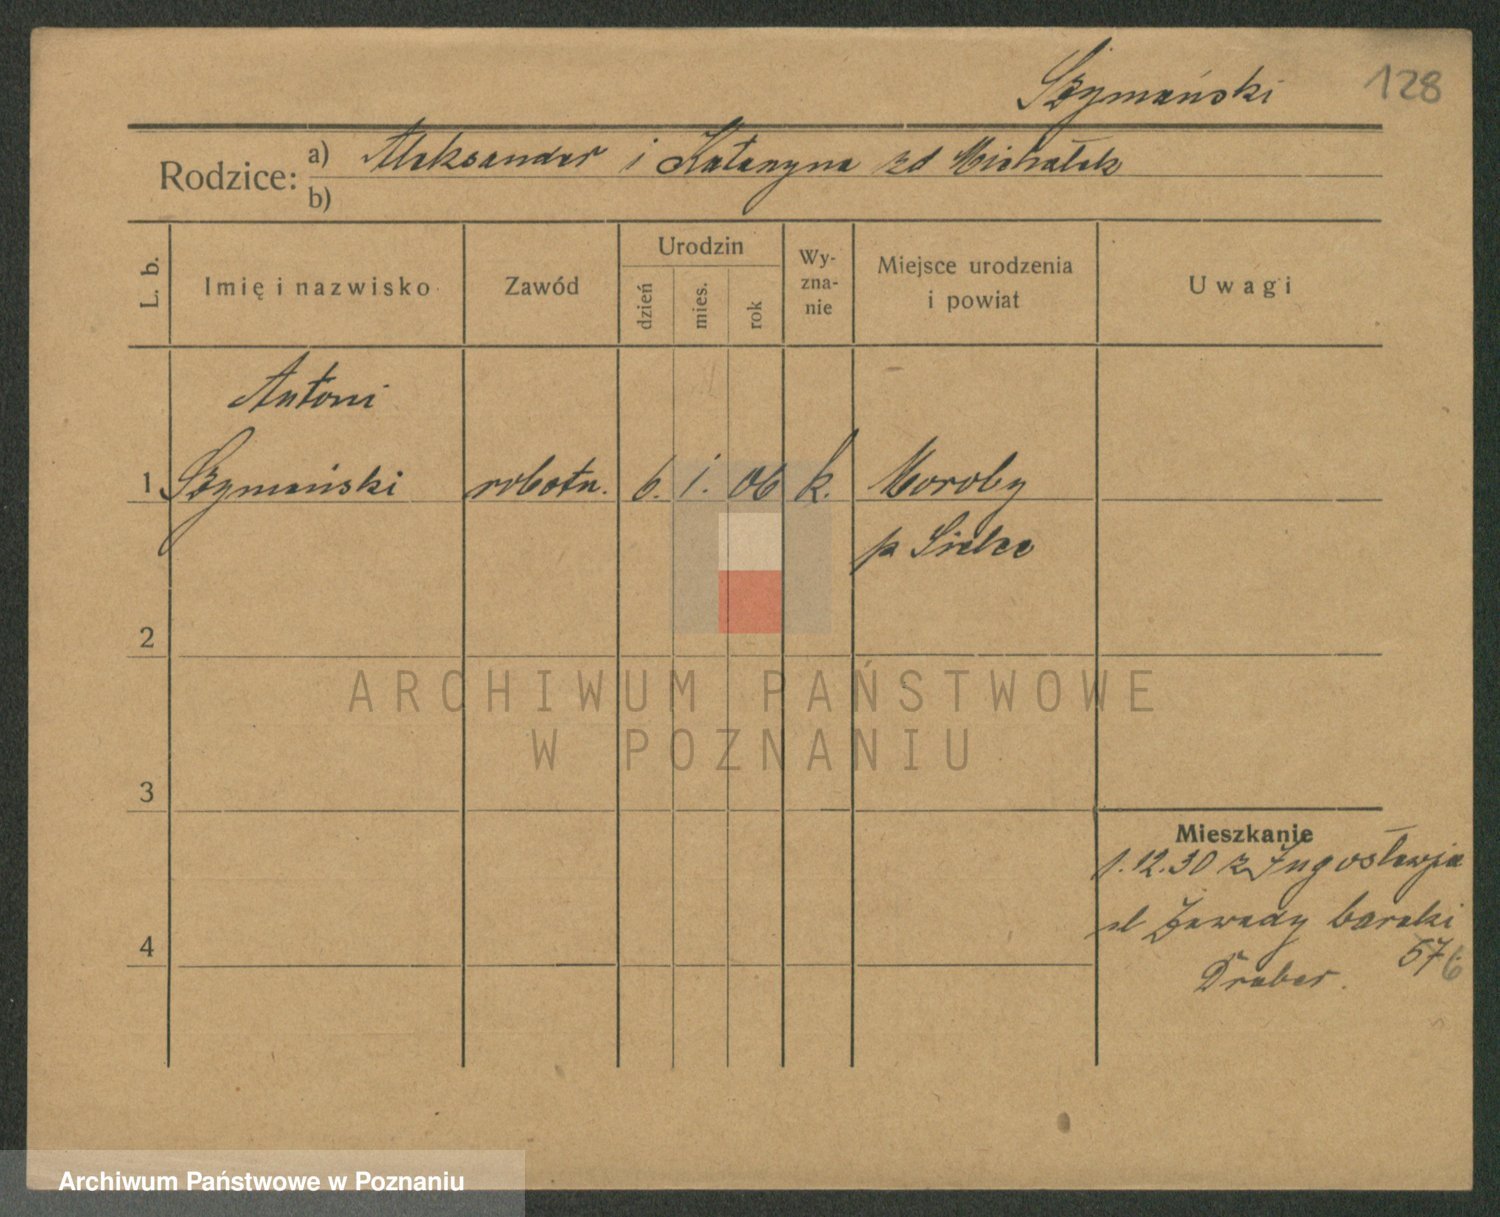 Szymański 128
Rodzice: a) Aleksander i Katarzyna zd Michałek
b)
L. b. Imię i nazwisko Zawód Urodzin dzień mies. rok Wyznanie Miejsce urodzenia i powiat Uwagi
Antoni
1 Szymański robotn. 6. 1. 06 k. Moroby
p Sielce
2
ARCHIWUM PAŃSTWOWE
W POZNANIU
3
Mieszkanie
1.12.30 z Jugosławja
ul Zawady baraki
57 6
4
Draber.
Archiwum Państwowe w Poznaniu